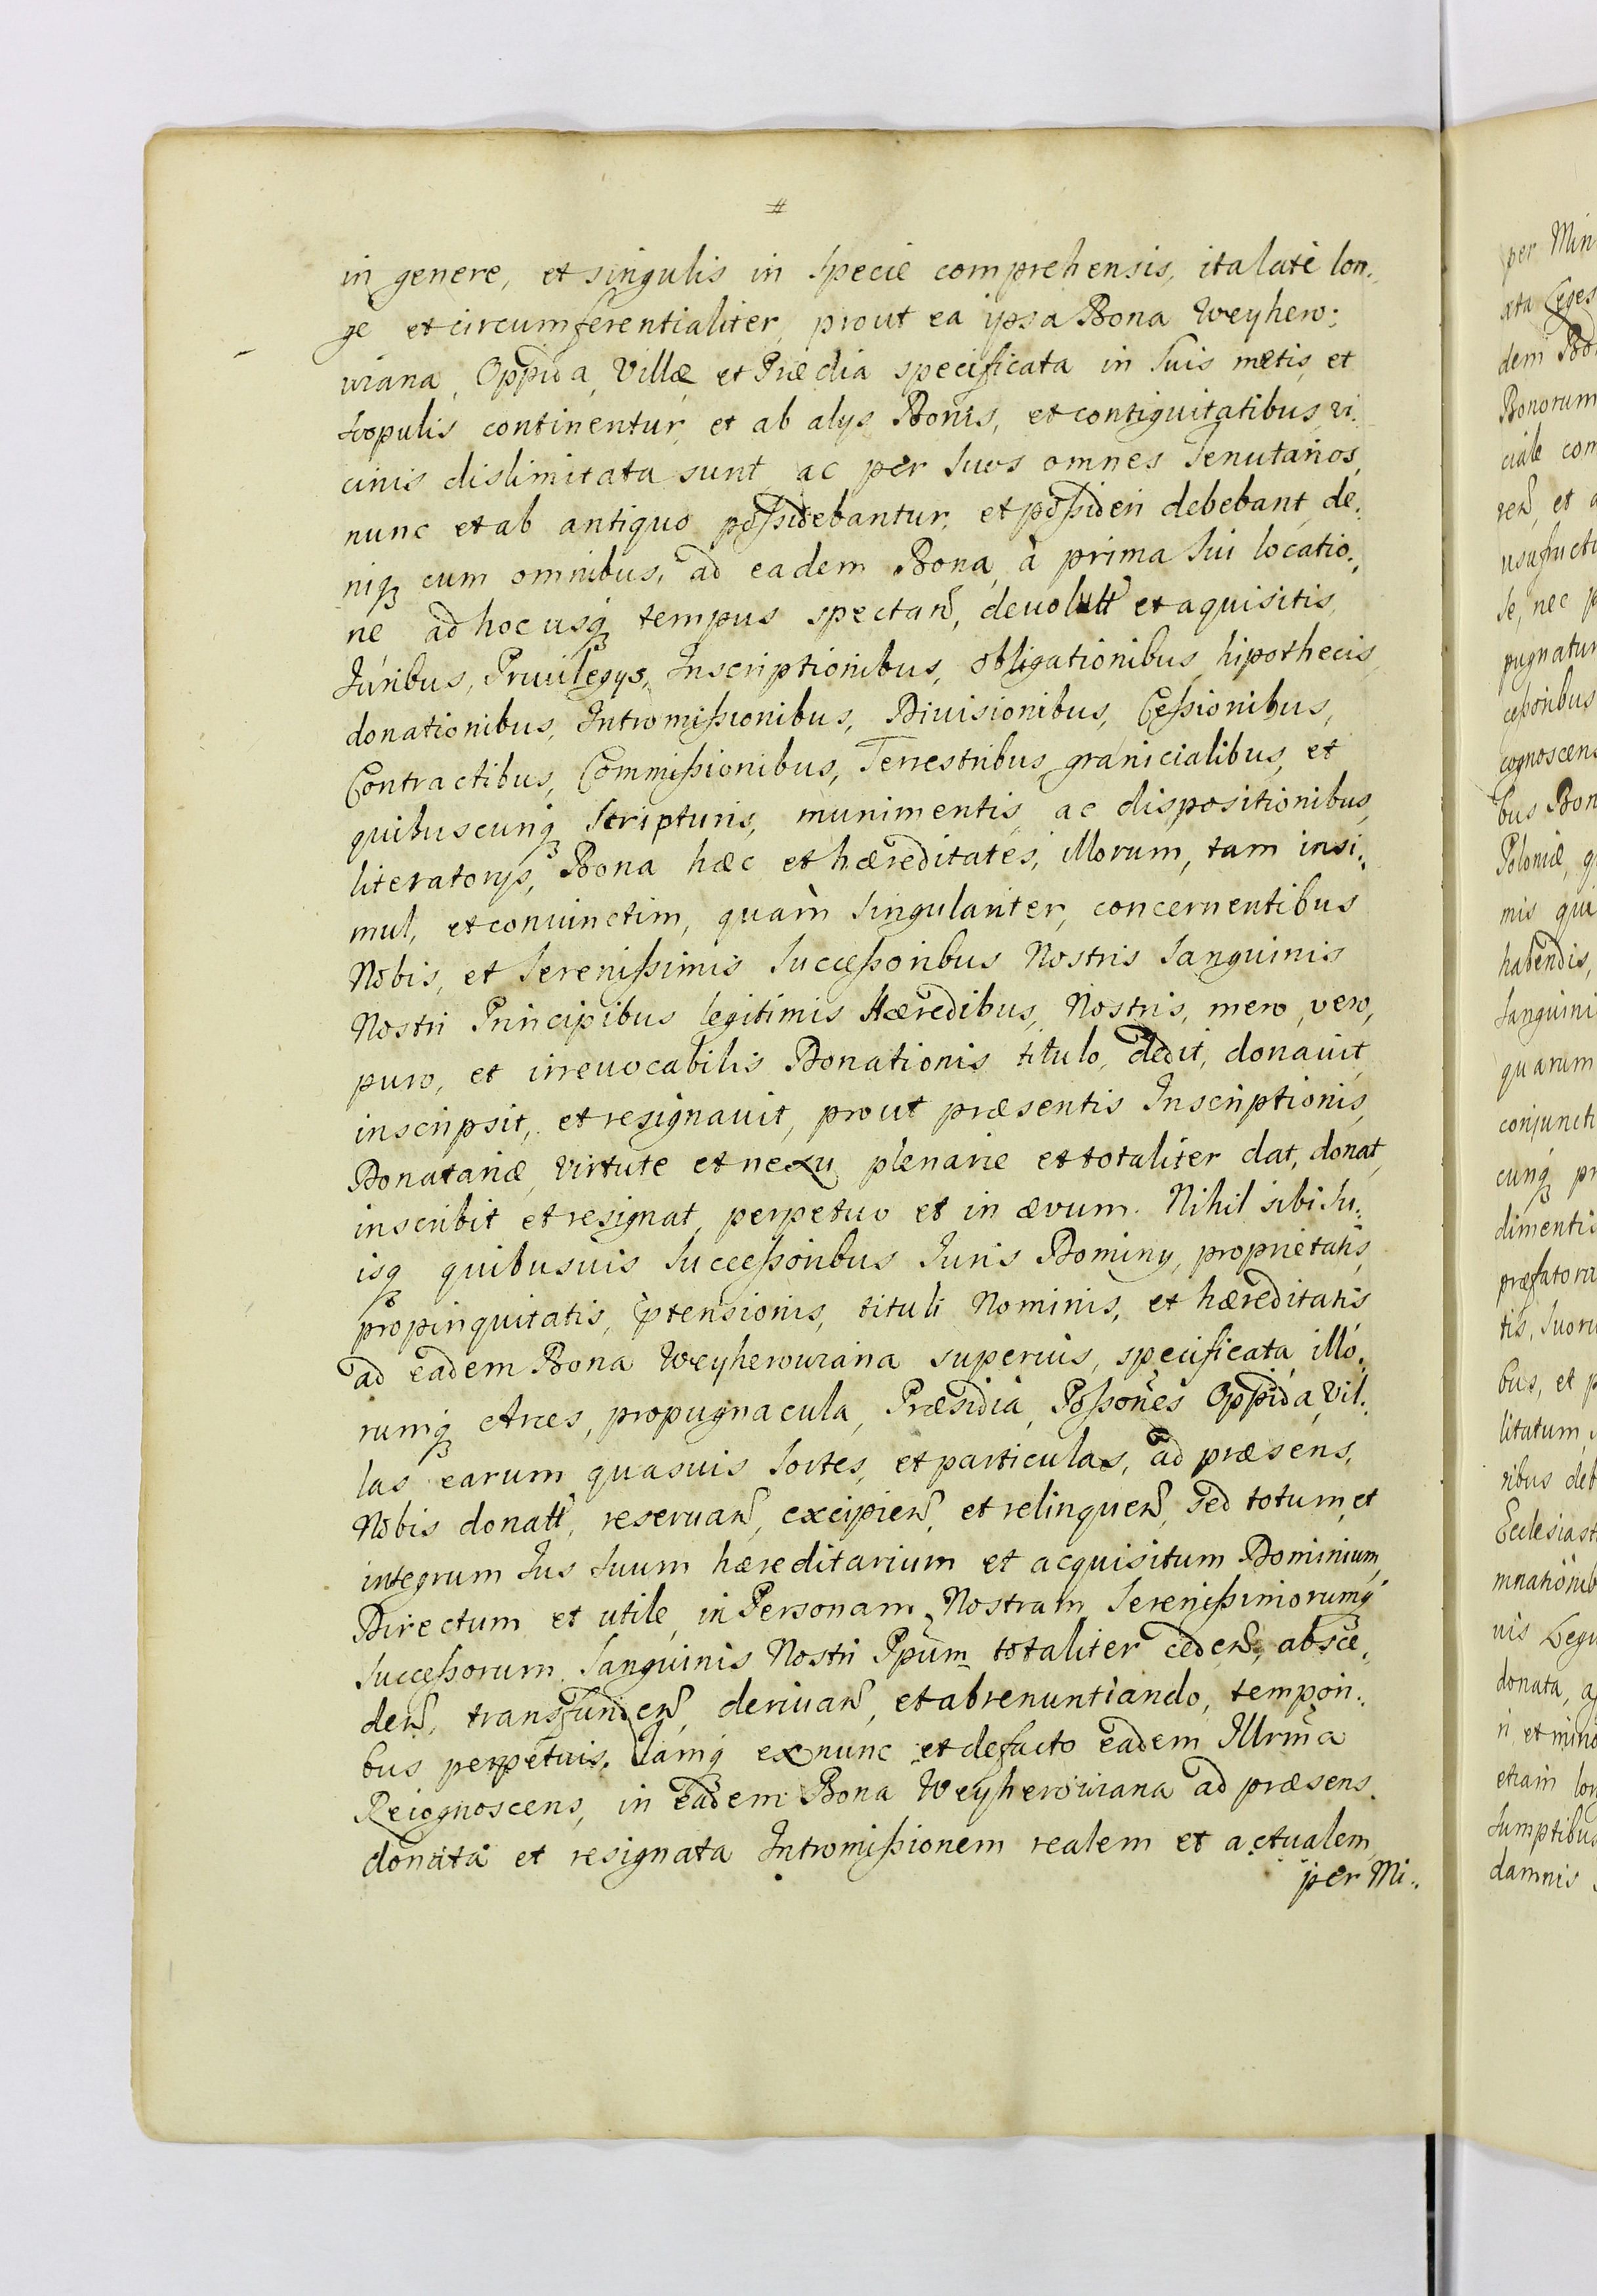 #
in genere, et singulis in Specie comprehensis, ita latè lon:
ge et circumferentialiter, prout ea ipsa Bona Weyhero:
viana, Oppida, Villæ et Prædia specificata in Suis metis, et
scopulis continentur, et ab alys Bonis, et contiguitatibus, vi:
cinis dislimitata sunt, ac per Suos omnes Tenutarios,
nunc et ab antiquo possidebantur, et possideri debebant, de:
niq cum omnibus, ad eadem Bona, à prima Sui locatio:
ne, ad hoc usq tempus spectan, devolutt et aquisitis,
Iuribus, Privilegys, Inscriptionibus, obligationibus, hipothecis,
donationibus, Intromissionibus, Divisionibus, Cessionibus,
Contractibus, Commissionibus, Terrestribus, granicialibus, et
quibuscunq Scripturis, munimentis, ac dispositionibus,
literatorys, Bona hæc et hæreditates, illorum, tam insi:
mul, et coniunctim, quàm Singulariter, concernentibus
Nobis, et Serenissimis Successoribus Nostris Sanguinis
Nostri Principibus legitimis Hæredibus, Nostris, mero, vero,
puro, et irrevocabilis Donationis titulo, dedit, donavit,
inscripsit, et resignavit, prout præsentis Inscriptionis,
Donatariæ, virtute et nexu, plenarie et totaliter dat, donat,
inscribit et resignat, perpetuo et in ævum. Nihil sibi Su:
isq quibusuis Successoribus Iuris Dominy, proprietatis,
propinquitatis, ptensionis, tituli Nominis, et hæreditatis
ad eadem Bona Weyheroviana superius, specificata, illo:
rumq Arces, propugnacula, Præsidia, Possones Oppida, Vil:
las earum quasuis Sortes, et particulas, ad præsens,
Nobis donatt, reservan, excipien, et relinquen, sed totum, et
integrum Ius Suum hæreditarium et acquisitum Dominium,
Directum et utile, in Personam Nostram Serenissimorumq
Successorum Sanguinis Nostri Ppum totaliter ceden, absce:
den, transfunden, derivan, et abrenuntiando, tempori:
bus perpetuis. Iamq ex nunc et de facto eadem Illrma
Recognoscens, in eadem Bona Weyheroviana ad præsens
donata et resignata Intromissionem realem et actualem,
per Mi:
per Min
ata Leges
dem Bo
Bonorum
ciale com
ren, et a
usufructu
Se, nec p
pugnatur
cessoribus
cognoscens
bus Bon
Poloniæ, q
mis qui
habendis,
Sanguini
quarum
conjuncti
cunq pr
dimenti
præfatoru
tis, Suoru
bus, et p
litatum,
ribus deb
Ecclesiast
mnationib
uis Legu
donata, a
ri, et mino
etiam lon
Sumptibus
damnis